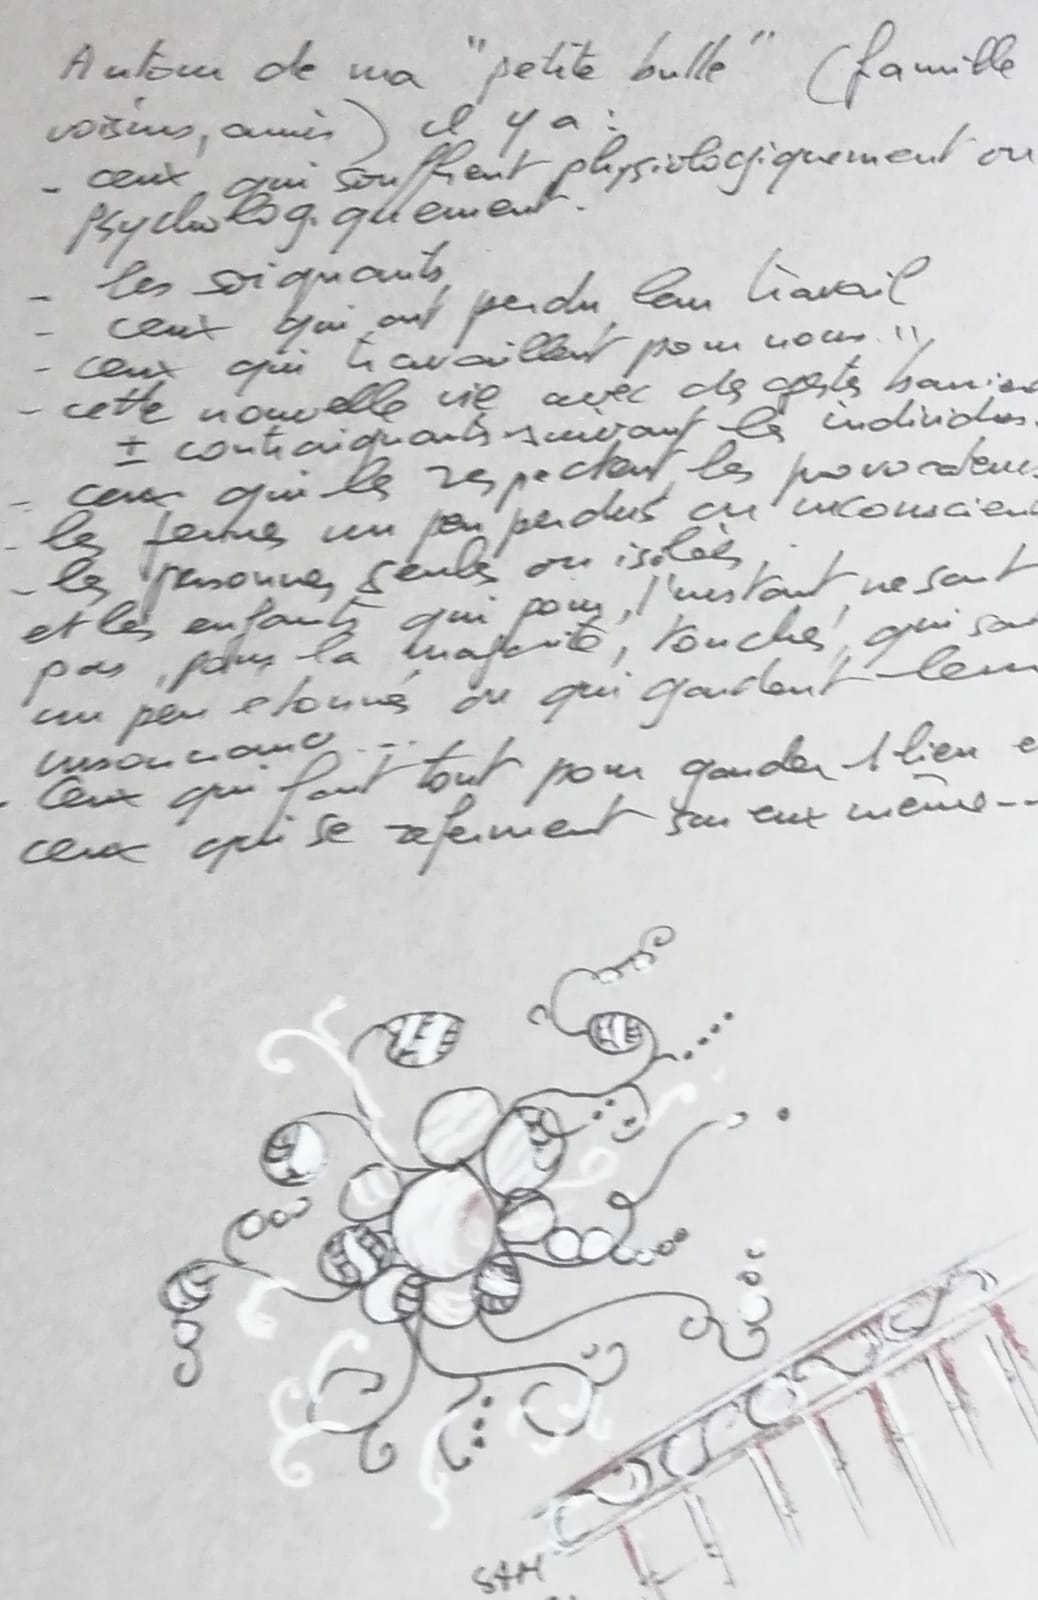 Autour de ma "petite bulle" (famille
voisins, amis) il y a :
- ceux qui souffrent physiologiquement ou
psychologiquement.
- les soignants
- ceux qui ont perdu leur travail
- ceux qui travaillent pour nous !!
- cette nouvelle vie avec des gestes
± contraignants suivant les individus.
- ceux qui les respectent, les
- les jeunes un peu perdus ou
- les personnes seules ou isolées
et les enfants qui pour l'instant ne sont
pas, pour la majorité, touchés, qui
un peu etonnés ou qui gardent leur
- Ceux qui font tout pour garder 1 lien
ceux qui se referment sur eux même---
SAM